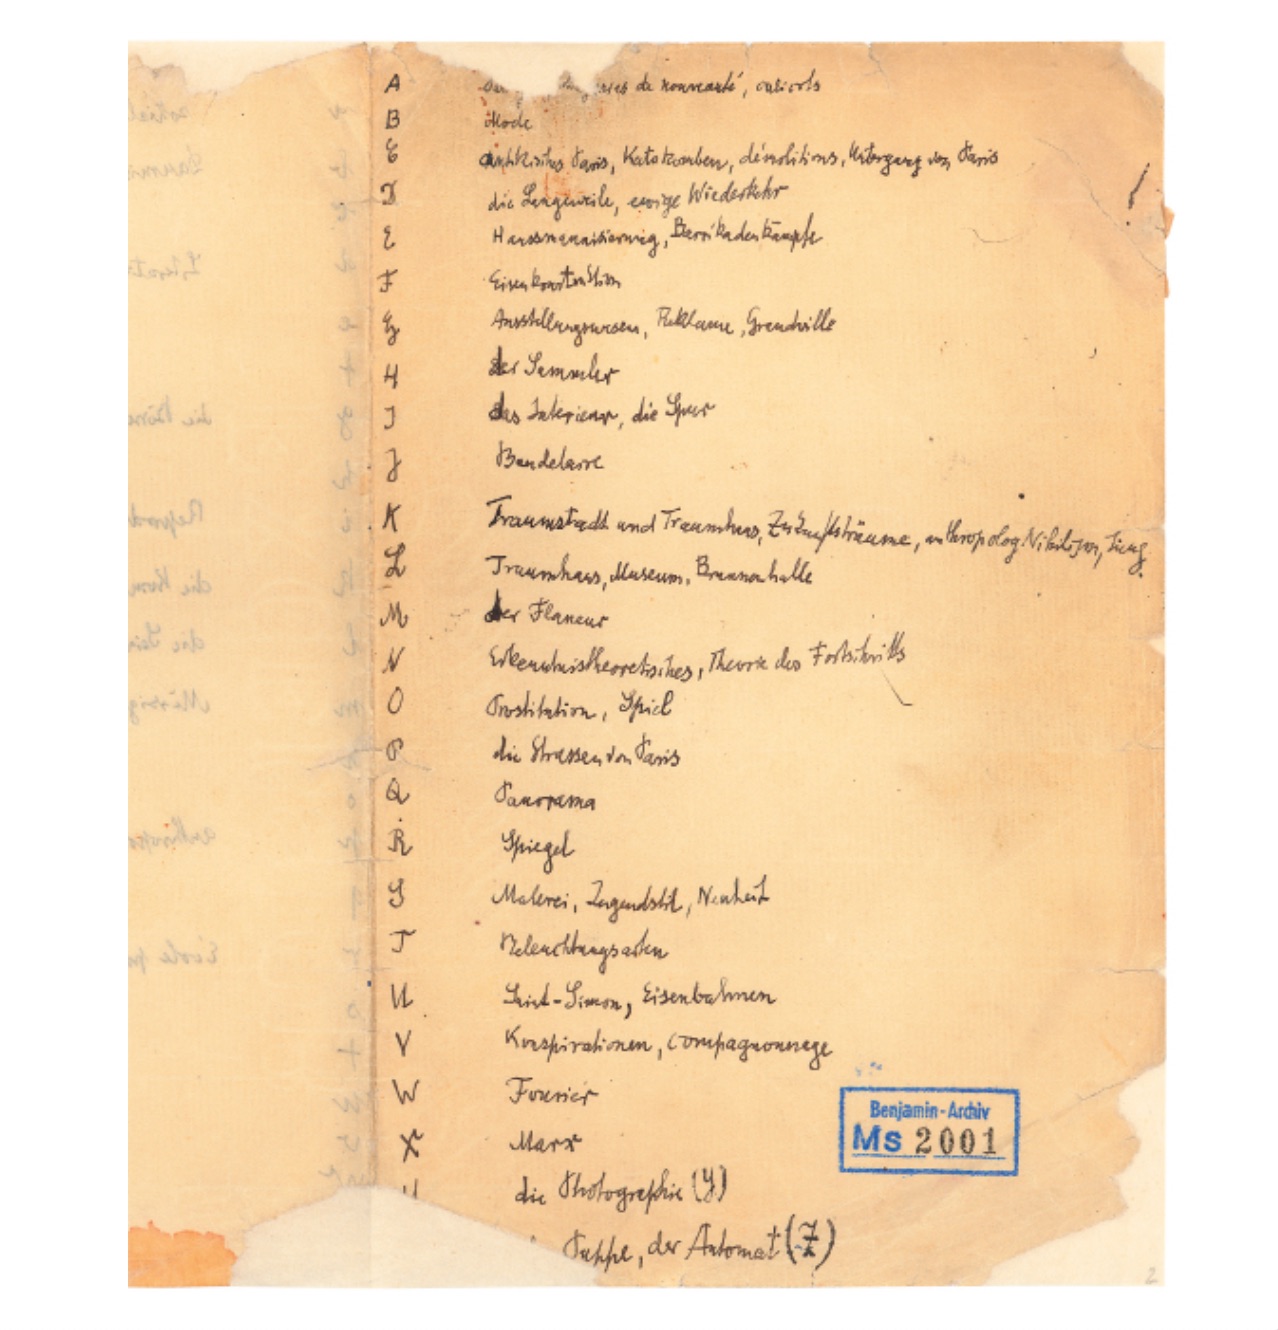 A de nouveauté, calicots
B Mode
C antikisches Paris, Katakomben, démolitions, Untergang von Paris
D die Langeweile, ewige Wiederkehr
E Haussmannisierung, Barrikadenkämpfe
F Eisenkonstruktion
G Ausstellungswesen, Reklame, Grandville
H der Sammler
I das Interieur, die Spur
J Baudelaire
K Traumstadt und Traumhaus, Zukunftsträume, anthropolog. Nihilism, Jung
L Traumhaus, Museum, Brunnenhalle
M der Flaneur
N Erkenntnistheoretisches, Theorie des Fortschritts
O Prostitution, Spiel
P die Strassen von Paris
Q Panorama
R Spiegel
S Malerei, Jugendstil, Neuheit
T Beleuchtungsarten
U Saint-Simon, Eisenbahnen
V Konspirationen, compagnonnage
W Fourier
X Marx
die Photographie (Y)
Puppe, der Automat (Z)
Benjamin-Archiv
Ms 2001
2